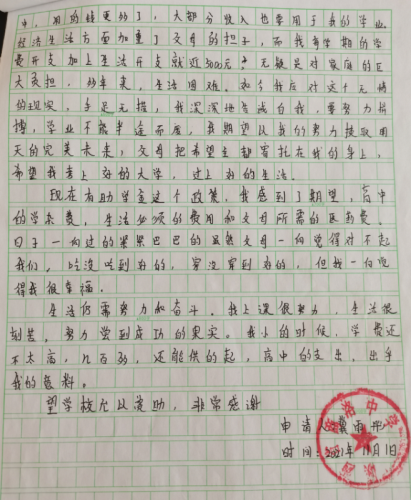 中,用的钱更多了,大部分收入也要用于我的学业,
经济生活方面加重了父母的担子,而我每学期的学
费开支加上生活开支就近5000元,无疑是对家庭的巨
大负担,多年来,生活困难。如今我后对这个无情
的现实,手足无措,我深深地告诫自我,要努力拼
搏,学业不能半途而废,我期望以我的努力换取明
天的完美未来,父母把希望全部寄托在我的身上,
希望我考上好的大学,过上好的生活。
现在有助学金这个政策,我感到了期望,高中
的学杂费,生活必须的费用和父母所需的医药费。
日子一向过的紧巴巴的虽然父母一向觉得对不起
我们,吃没吃到好的,穿没穿到好的,但我一向觉
得我很幸福。
生活仍需努力和奋斗。我上课很努力,生活很
刻苦,努力尝到成功的果实。我小的时候,学费还
不太高,几百多,还能供的起,高中的支出,出乎
我的意料。
望学校允以资助,非常感谢
申请
时间:2021年11月1日
中学